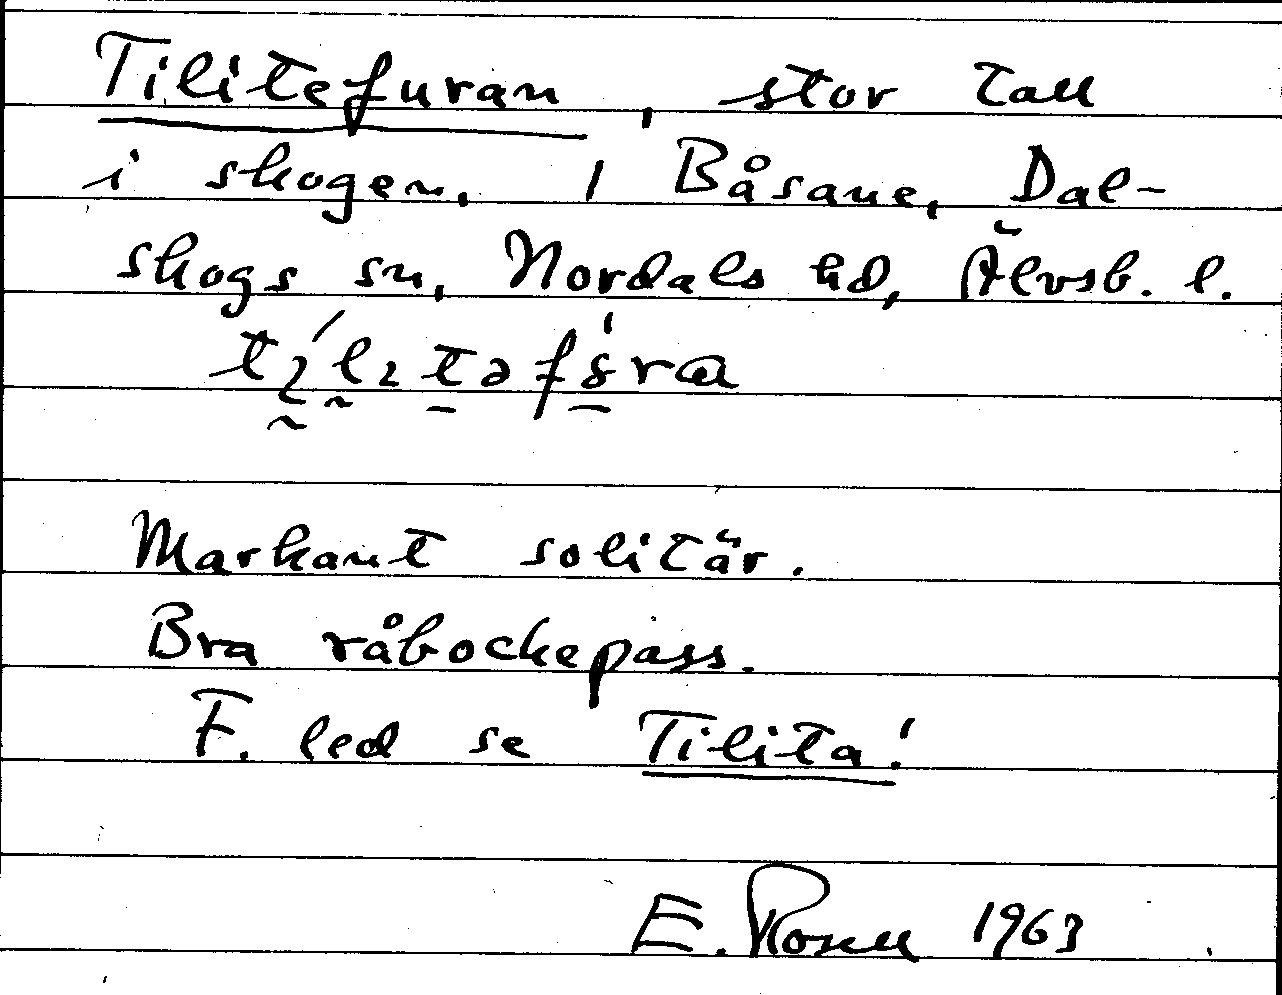 Tilitefuran, stor tall
i skogen. I Båsane, Dal-
skogs sn, Nordals hd, Älvsb. l.
Markant solitär.
Bra råbockepass.
F. led se Tilita!
E. 1963